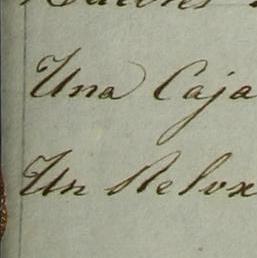 Una Caja
Un Relox